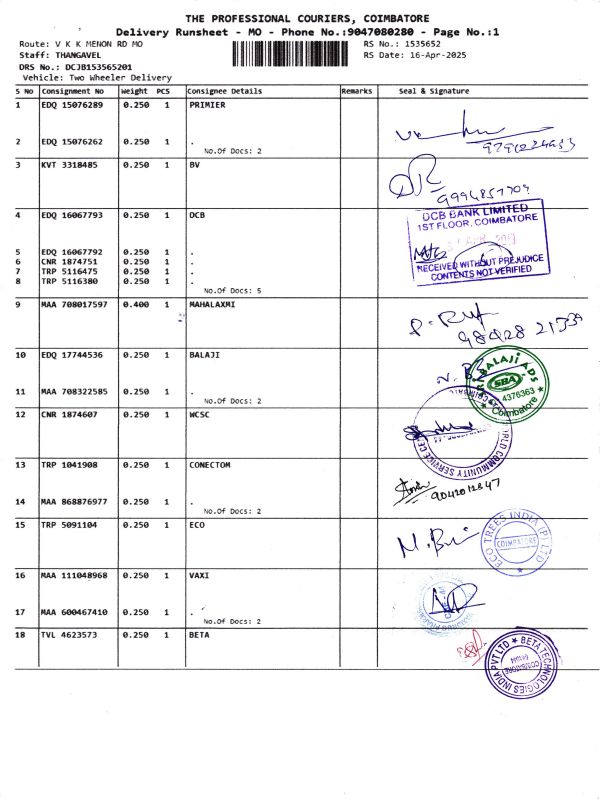 THE PROFESSIONAL COURIERS, COIMBATORE
Delivery Runsheet - MO - Phone No.:9047080280 - Page No.:1
Route: V K K MENON RD MO RS No.: 1535652
Staff: THANGAVEL RS Date: 16-Apr-2025
DRS No.: DCJB153565201
Vehicle: Two Wheeler Delivery
S No Consignment No Weight PCS Consignee Details Remarks Seal & Signature
1 EDQ 15076289 0.250 1 PRIMIER
2 EDQ 15076262 0.250 1 .
No.Of Docs: 2
3 KVT 3318485 0.250 1 BV
9994857709
4 EDQ 16067793 0.250 1 DCB
DCB BANK LIMITED
1ST FLOOR, COIMBATORE
5 EDQ 16067792 0.250 1 .
6 CNR 1874751 0.250 1 .
7 TRP 5116475 0.250 1 .
RECEIVED WITHOUT PREJUDICE
8 TRP 5116380 0.250 1 .
CONTENTS NOT VERIFIED
No.Of Docs: 5
9 MAA 708017597 0.400 1 MAHALAXMI
98428 21339
10 EDQ 17744536 0.250 1 BALAJI
SRI BALAJI ADS
SBA
4376363
Coimbatore
11 MAA 708322585 0.250 1 .
No.Of Docs: 2
12 CNR 1874607 0.250 1 WCSC
WORLD COMMUNITY SERVICE
13 TRP 1041908 0.250 1 CONECTOM
9042012847
14 MAA 868876977 0.250 1 .
No.Of Docs: 2
15 TRP 5091104 0.250 1 ECO
ECO TREES INDIA (P) LTD
COIMBATORE
16 MAA 111048968 0.250 1 VAXI
17 MAA 600467410 0.250 1 .
No.Of Docs: 2
18 TVL 4623573 0.250 1 BETA
BETA TECHNOLOGIES INDIA PVT LTD
COIMBATORE